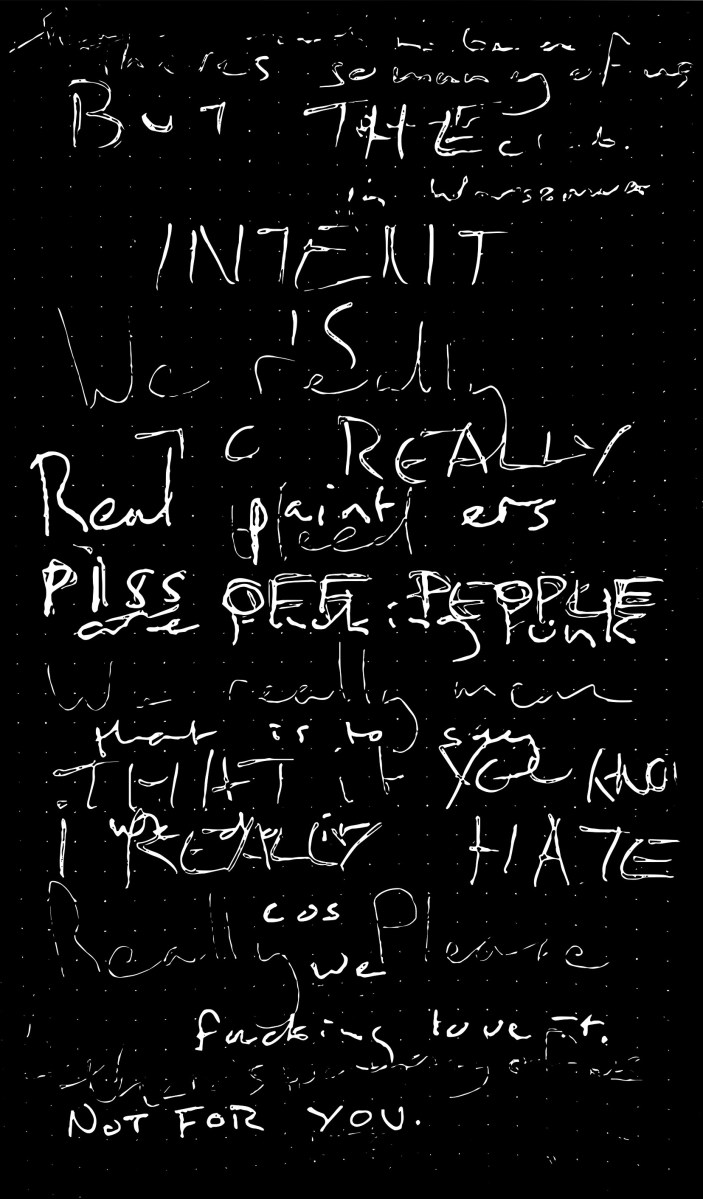 there's so many of us
BUT THE
in Warszawa
INTENT
IS
We really
TO REALLY
Real painters
bleed
PISS OFF PEOPLE
are fucking punk
We really mean
that is to say
THAT it YOU KNO
we do it
I REALLY HATE
cos
Really Please
we
fucking love it.
NOT FOR YOU.